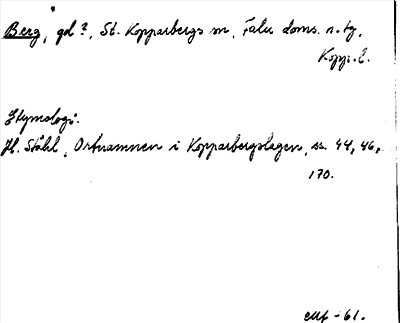 Berg, gd ?, St. Kopparbergs sn, Falu doms. n. tg,
Kopp. l.
Etymologi:
H. Ståhl, Ortnamnen i Kopparbergslagen, ss. 44, 46,
170.
-61.